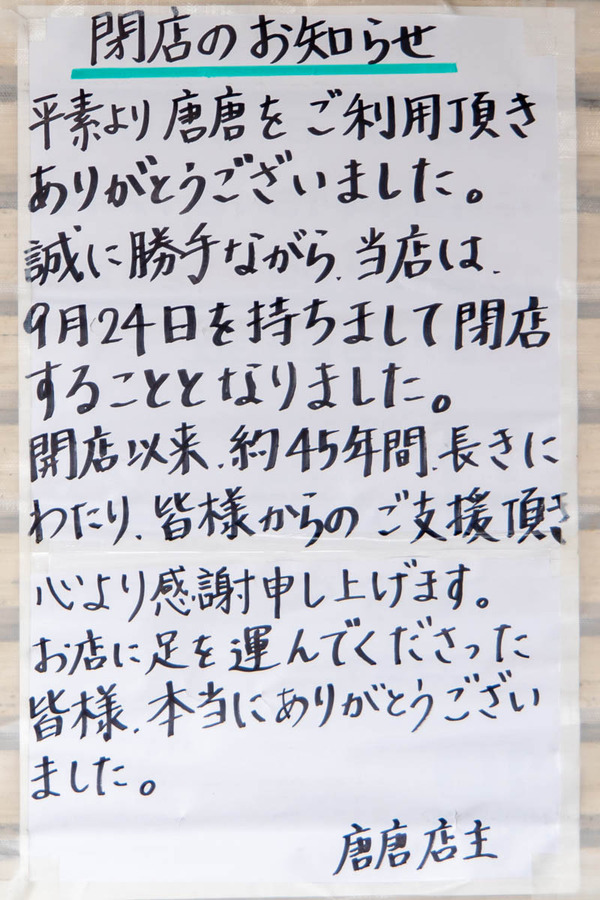 閉店のお知らせ
平素より唐唐をご利用頂き
ありがとうございました。
誠に勝手ながら、当店は、
9月24日を持ちまして閉店
することとなりました。
開店以来、約45年間、長きに
わたり、皆様からのご支援頂き
心より感謝申し上げます。
お店に足を運んでくださった
皆様、本当にありがとうござい
ました。
唐唐店主